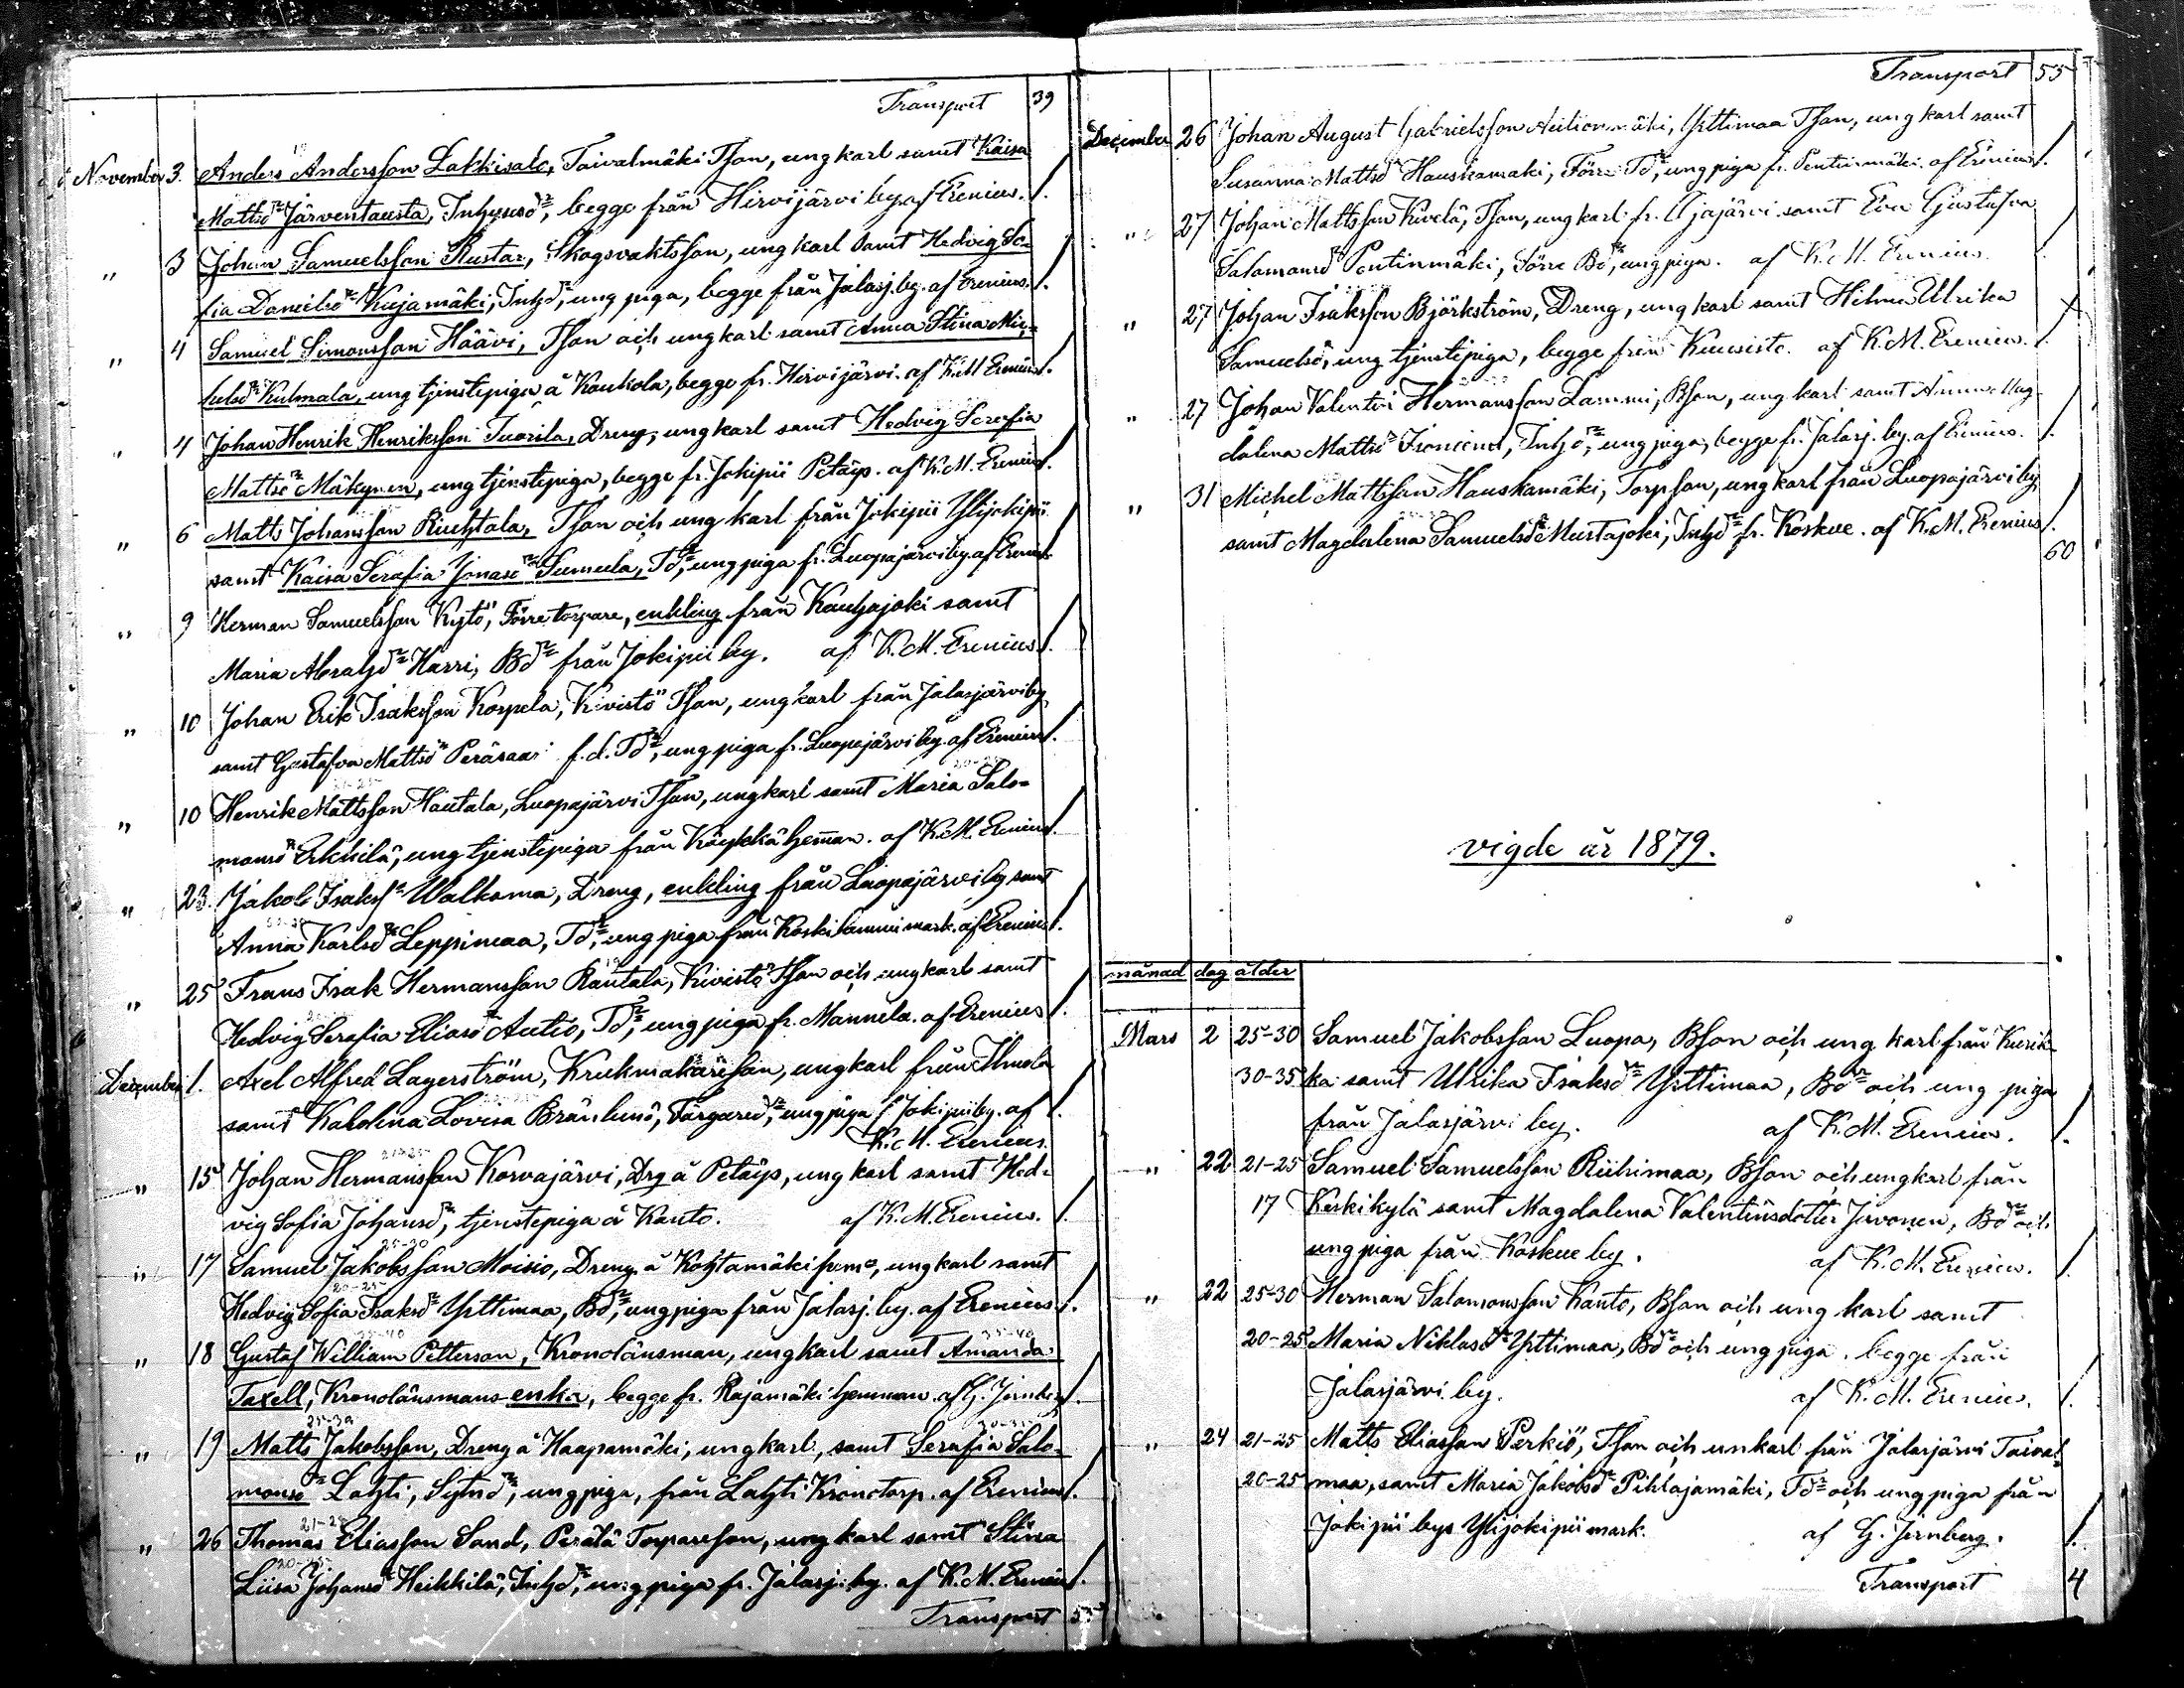 Transport 39
November 3. Anders Andersson Lakkisalo, Taivalmäki Tson, ung karl samt Kaisa
Mattsdr Järventausta, Inhysesdr, begge från Hirvijärvi by. af Erenius. 1.
" 3 Johan Samuelsson Rustar, Skogsvaktsson, ung karl samt Hedvig So-
fia Danielsdr Kujamäki, Inhdr, ung piga, begge från Jalasj. by. af Erenius. 1.
" 4 Samuel Simonsson Häävi, Tson och ung karl samt Anna Stina Mic-
helsdr Kulmala, ung tjenstepiga å Koukola, begge fr. Hirvijärvi. af K. M. Erenius 1.
" 4 Johan Henrik Henriksson Tuorila, Dreng, ung karl samt Hedvig Serafia
Mattsdr Mäkynen, ung tjenstepiga, begge fr. Jokipii Petäys. af K. M. Erenius 1.
" 6 Matts Johansson Riuhtala, Tson och ung karl från Jokipii Ylijokipii
samt Kaisa Serafia Jonasdr Sumela, Tdr, ung piga fr. Luopajärvi by. af Erenius
" 9 Herman Samuelsson Kytö, Förre torpare, enkling från Kauhajoki samt
Maria Abrahdr Harri, Bdr från Jokipii by. af K. M. Erenius 1.
" 10 Johan Erik Isaksson Korpela, Kivistö Tson, ung karl från Jalasjärvi by
samt Gustafva Mattsdr Peräsaari f. d. Tdr, ung piga fr. Luopajärvi by. af Erenius 1.
" 10 Henrik Mattsson Hautala, Luopajärvi Tson, ung karl samt Maria Salo-
monsdr Erkkilä, ung tjenstepiga från Köykkä heman. af K. M. Erenius 1.
" 23. Jakob Isakss. Walkama, Dreng, enkling från Luopajärvi by samt
Anna Karlsdr Leppimaa, Tdr, ung piga från Koskilammi mark. af Erenius 1.
" 25 Frans Isak Hermansson Rautala, Kivistö Tson och ung karl samt
Hedvig Serafia Eliasdr Autio, Tdr, ung piga fr. Mannela. af Erenius 1.
December 1. Axel Alfred Lagerström, Krukmakaresson, ung karl från Ilmola
samt Karolina Lovisa Färgaredr, ung piga f. Jokipii by. af 1.
K. M. Erenius.
" 15 Johan Hermansson Korvajärvi, Drg å Petäys, ung karl samt Hed-
vig Sofia Johansdr, tjenstepiga å Kanto. af K. M. Erenius. 1.
25-30
" 17 Samuel Jakobsson Moisio, Dreng å Kohtamäki heme, ung karl samt
20-25
Hedvig Sofia Isaksdr Yrttimaa, Bdr, ung piga från Jalasj. by. af Erenius 1.
35-40
" 18 Gustaf William Petterson, Kronolänsman, ung karl samt Amanda
Taxell, Kronolänsmans enka, begge fr. Rajamäki hemman. af G. Jernberg 1.
25-30
" 19 Matts Jakobsson, Dreng å Haapamäki, ung karl, samt Serafia Salo-
monsdr Lahti, Sytndr, ung piga, från Lahti Kronotorp. af Erenius 1.
21-25
" 26 Thomas Eliasson Sand, Perälä Torpareson, ung karl samt Stina
20-25
Liisa Johansdr Heikkilä, Inhdr, ung piga fr. Jalasj. by. af K. M. Erenius 1.
Transport 55
Transport 55
December 26 Johan August Gabrielsson Autionmäki, Yrttimaa Tson, ung karl samt
Susanna Mattsdr Hauskamäki, Förre Tdr, ung piga fr. Pentinmäki. af Erenius 1.
" 27 Johan Mattsson Kivelä, Tson, ung karl fr. Ujajärvi samt Eva Gustafva
Salamonsdr Pentinmäki, Förre Bdr, ung piga. af K. M. Erenius 1.
" 27 Johan Isaksson Björkström, Dreng, ung karl samt Hilma Ulrika
Samuelsdr, ung tjenstepiga, begge från Kuusisto. af K. M. Erenius. 1.
" 27 Johan Valentin Hermansson Lammi, Bson, ung karl samt Anna Mag-
dalena Mattsdr Ironiemi, Inhdr, ung piga, begge fr. Jalasj. by. af Erenius. 1.
" 31 Michel Mattsson Hauskamäki, Torpson, ung karl från Luopajärvi by
samt Magdalena Samuelsdr Mustajoki, Inhdr fr. Koskue. af K. M. Erenius 1.
60
vigde år 1879.
månad dag ålder
Mars 2 25-30 Samuel Jakobsson Luopa, Bson och ung karl från Kurik-
30-35 ka samt Ulrika Isaksdr Yrttimaa, Bdr och ung piga
från Jalasjärvi by. af K. M. Erenius. 1.
" 22 21-25 Samuel Samuelsson Riihimaa, Bson och ung karl från
17 Keskikylä samt Magdalena Valentinsdotter Jwonen, Bdr och
ung piga från Koskue by. af K. M. Erenius. 1.
" 22 25-30 Herman Salomonsson Kanto, Bson och ung karl samt
20-25 Maria Niklasdr Yrttimaa, Bdr och ung piga, begge från
Jalasjärvi by. af K. M. Erenius. 1.
" 24 21-25 Matts Eliasson Perkiö, Tson och unkarl från Jalasjärvi Taival-
20-25 maa, samt Maria Jakobsdr Pihlajamäki, Tdr och ung piga från
Jokipii bys Ylijokipii mark. af G. Jernberg. 1.
Transport 4